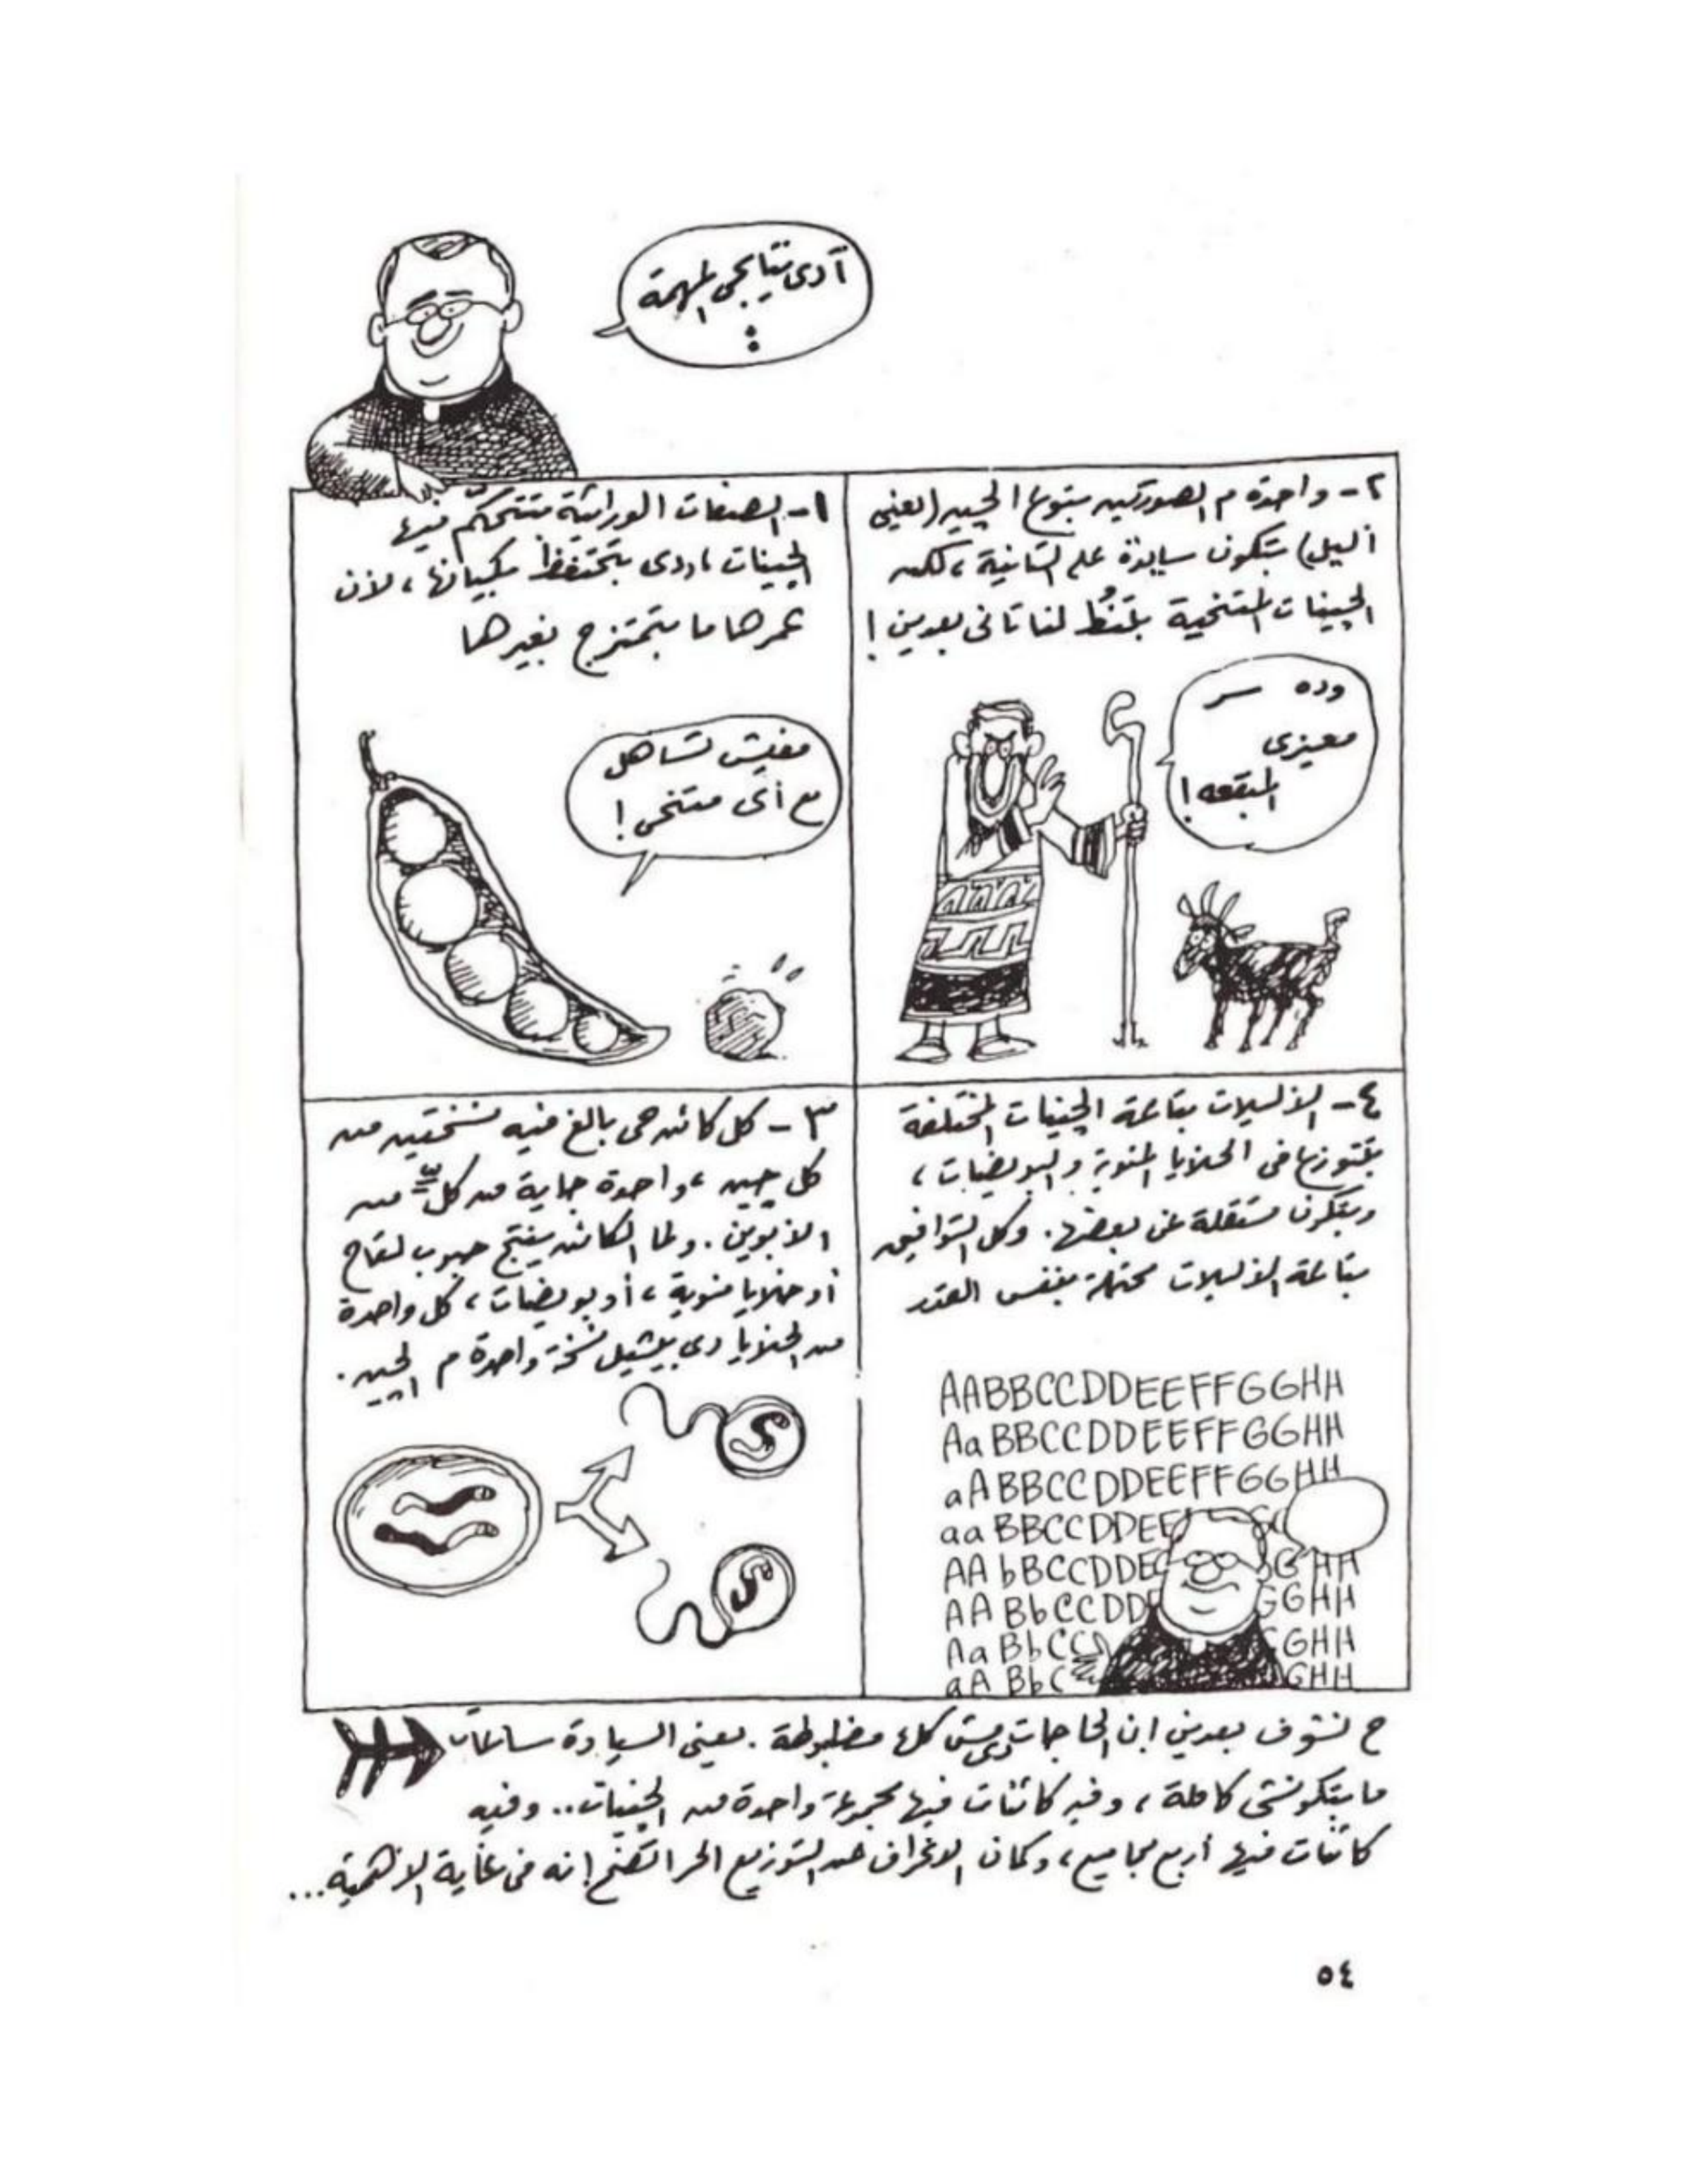 آدى نتايجى المهمة
:
١- الصفات الوراثية بتتحكم فيها
الجينات، ودى بتحتفظ بكيانها، لأن
عمرها ما بتمتزج بغيرها
مفيش تساهل
مع أى متنحى!
٢- واحدة م الصورتين بتوع الجين (يعنى
أليل) بتكون سايدة على التانية، لكن
الجينات المتنحية بتنُط لنا تانى بعدين!
وده سر
معيزى
المبقعه!
٣- كل كائن حى بالغ فيه نسختين من
كل جين، واحدة جاية من كل من
الأبوين. ولما الكائن ينتج حبوب لقاح
أو خلايا منوية، أو بويضات، كل واحدة
من الخلايا دى بيشيل نسخة واحدة م الجين.
٤- الأليلات بتاعة الجينات المختلفة
بتتوزع فى الخلايا المنوية والبويضات،
وبتكون مستقلة عن بعضها. وكل التوافيق
بتاعة الأليلات محتملة بنفس القدر
AABBCCDDEEFFGGHH
AaBBCCDDEEFFGGHH
aABBCCDDEEFFGGHH
aaBBCCDDEE
AAbBCCDDE GHH
AABbCCDD GGHH
AaBbCC GHH
aABbC GHH
ح نشوف بعدين ان الحاجات دى مش كلها مظبوطة. يعنى السيادة ساعات
ما بتكونشى كاملة، وفيه كائنات فيها مجموعة واحدة من الجينات.. وفيه
كائنات فيها أربع مجاميع، وكمان الانحراف عن التوزيع الحر اتضح إنه فى غاية الأهمية...
٥٤